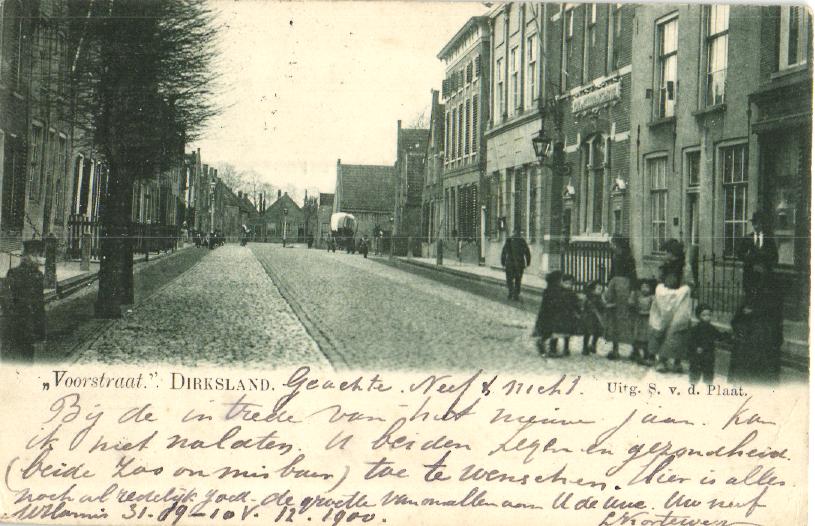 „Voorstraat.” DIRKSLAND. Geachte Neef & nicht. Uitg. S. v. d. Plaat.
Bij de in trede van het nieuwe jaar. Kan
ik niet nalaten. U beiden zegen en gezondheid.
(beide zoo onmisbaar) toe te wenschen. Hier is alles
noch al redelijk goed - de groette van allen aan U de uwe. Uw neef
31. 12. 1900.